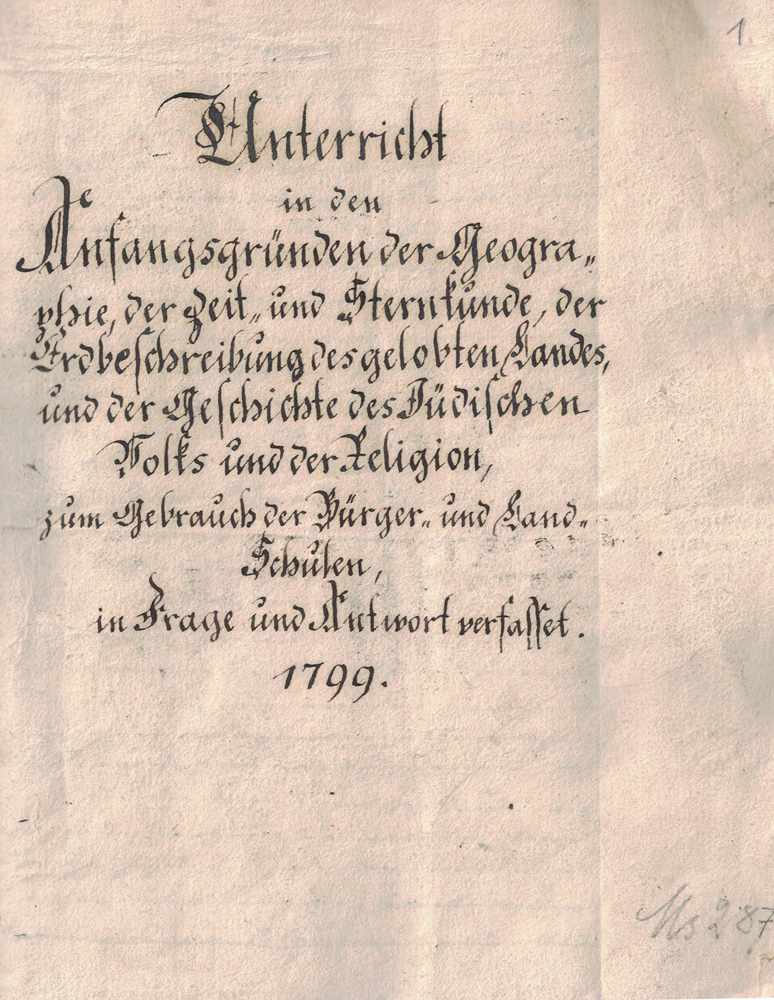 1
Unterricht
in den
Anfangsgründen der Geogra„
phie, der Zeit„ und Sternkunde, der
Erdbeschreibung des gelobten Landes,
und der Geschichte des Jüdischen
Volks und der Religion,
zum Gebrauch der Bürger„ und Land„
Schulen,
in Frage und Antwort verfasset.
1799.
Ms 287